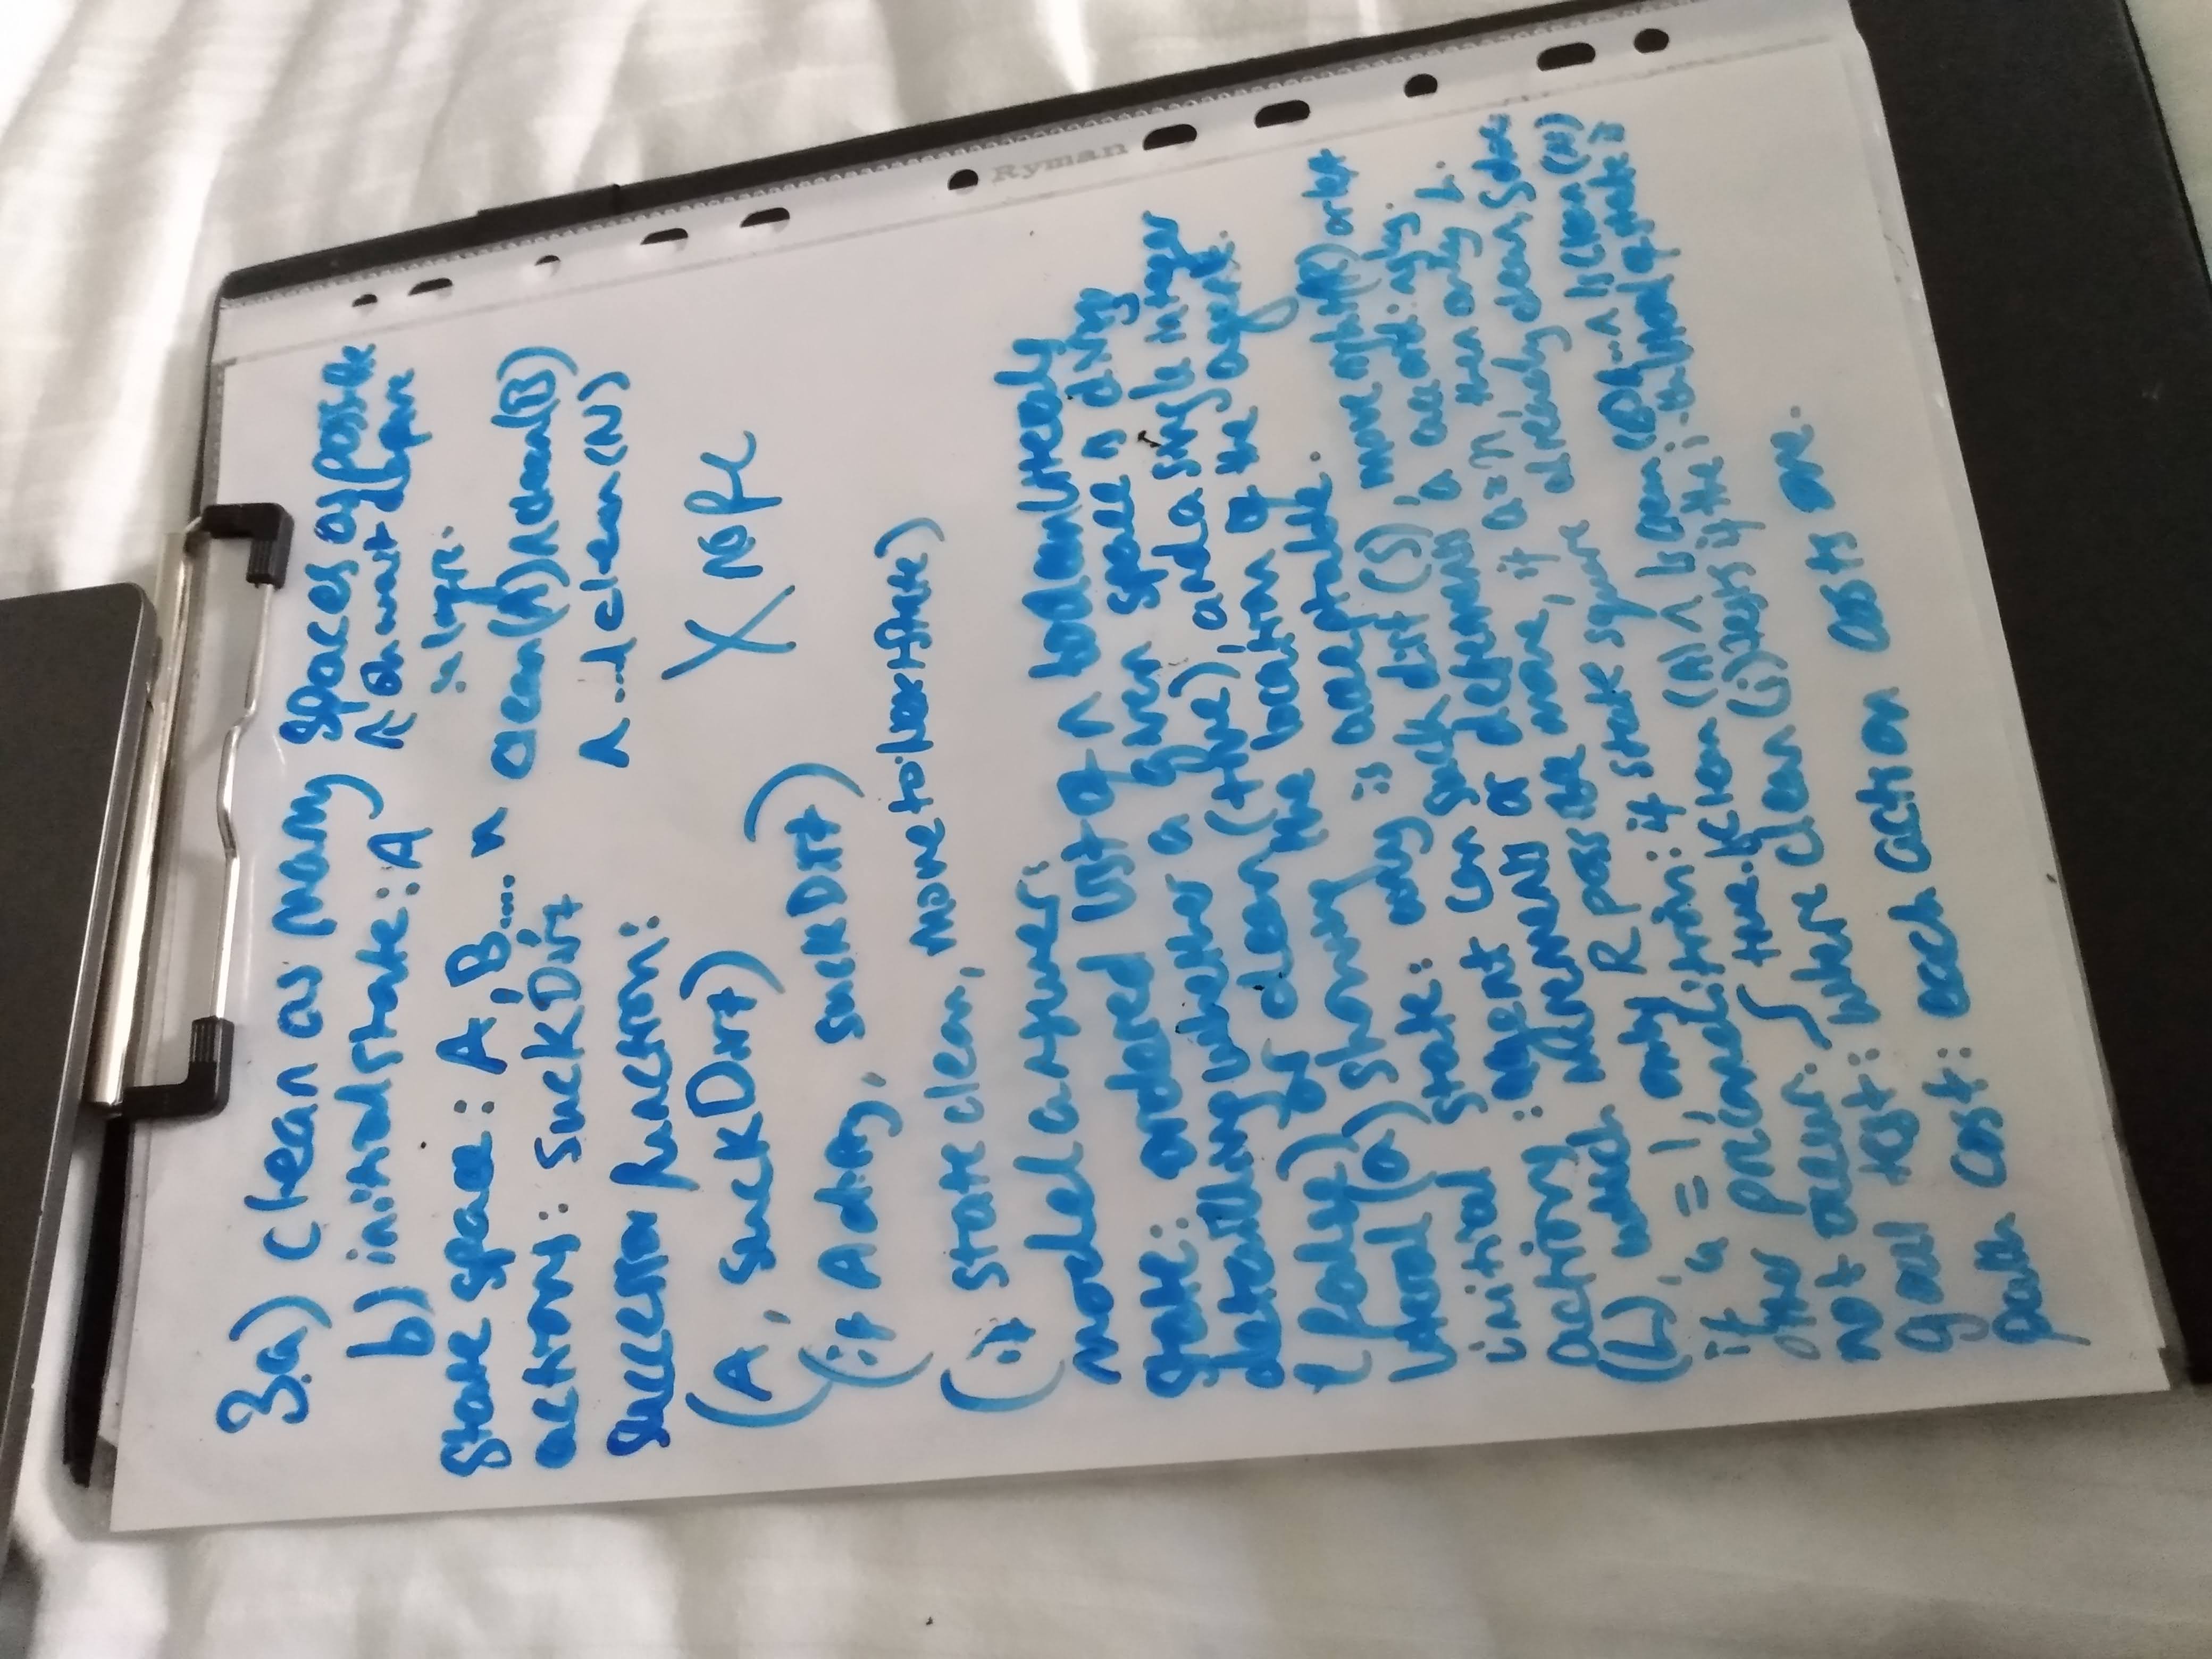 3.a) clean as many spaces as possible
b) initial state: A
↑ oh wait define
in logic.
state space: A, B, .... n
clean(A)∧clean(B)
actions: suckDirt
∧...∧clean(N)
successor function:
(A, suckDirt)
X nope
(if A dirty, suckDirt)
(if state clean, movetoNextState)
model answer:
state: ordered list of n boolean literals
detailing whether a given space is dirty
(false) or clean (true), and a single integer
literal (a) showing the location of the agent.
initial state: any is acceptable.
actions: agent can suck dirt (S), move right (R) or left
(L), which increments or decrements a accordingly.
if a = 1, only R possible move, if a = n, then only L.
other precondition: if state square already clean, S does
not occur.
goal test: where clean (i) tests if the i-th literal of state is
true. isClean (A) ∧ isClean (B) ∧ ... ∧ isClean (N)
path cost: each action costs one.
Ryman